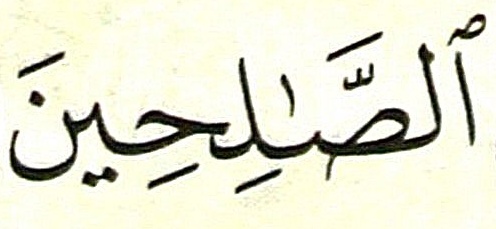 ٱلصَّـٰلِحِينَ